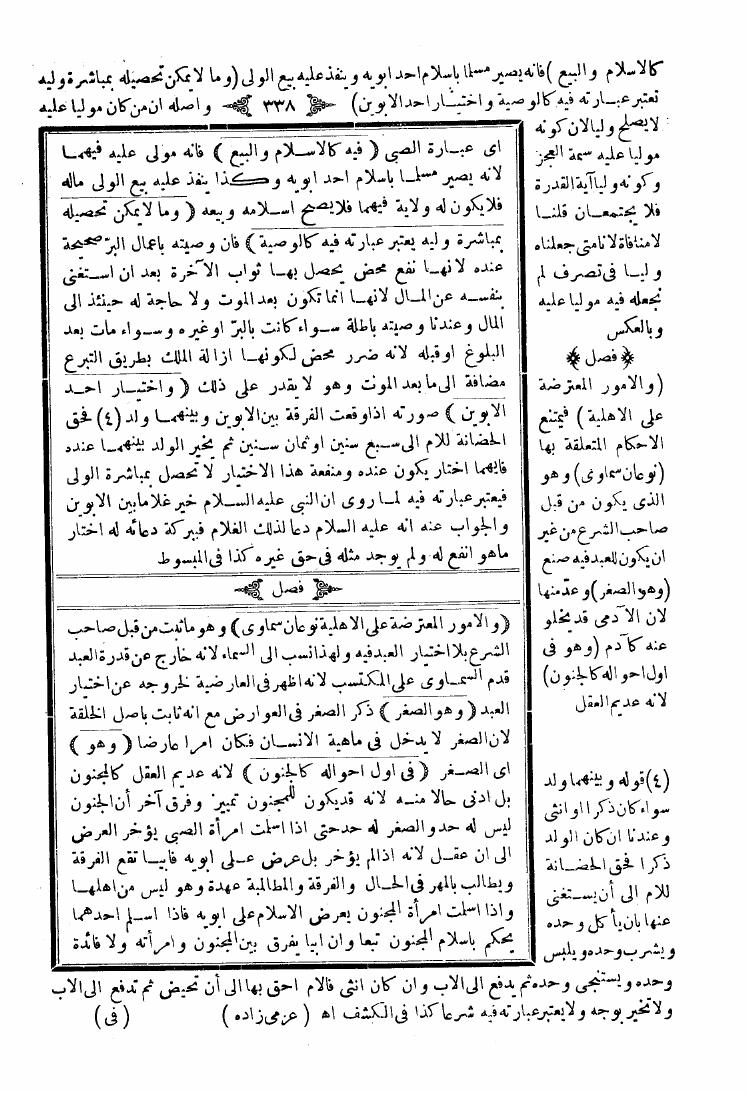 كالاسلام والبيع) فانه يصير مسلما باسلام احد ابويه وينفذ عليه بيع الولى (وما لا يمكن تحصيله بمباشرة وليه
تعتبر عبارته فيه كالوصية واختيار احد الابوين) ﴿ ٣٣٨ ﴾ واصله ان من كان موليا عليه
لا يصلح وليا لان كونه
موليا عليه سمة العجز
وكونه وليا آية القدرة
فلا يجتمعان قلنا
لا منافاة لانا متى جعلناه
وليا فى تصرف لم
نجعله فيه موليا عليه
وبالعكس
﴿ فصل ﴾
(والامور المعترضة
على الاهلية) فيمتنع
الاحكام المتعلقة بها
(نوعان سماوى) وهو
الذى يكون من قبل
صاحب الشرع من غير
ان يكون للعبد فيه صنع
(وهو الصغر) وعدّ منها
لان الآدمى قد يخلو
عنه كآدم (وهو فى
اول احواله كالجنون)
لانه عديم العقل
اى عبارة الصبى (فيه كالاسلام والبيع) فانه مولى عليه فيهما
لانه يصير مسلما باسلام احد ابويه وكذا ينفذ عليه بيع الولى ماله
فلا يكون له ولاية فيهما فلا يصح اسلامه وبيعه (وما لا يمكن تحصيله
بمباشرة وليه يعتبر عبارته فيه كالوصية) فان وصيته باعمال البرّ صحيحة
عنده لانها نفع محض يحصل بها ثواب الآخرة بعد ان استغنى
بنفسه عن المال لانها انما تكون بعد الموت ولا حاجة له حينئذ الى
المال وعندنا وصيته باطلة سواء كانت بالبرّ او غيره وسواء مات بعد
البلوغ او قبله لانه ضرر محض لكونها ازالة الملك بطريق التبرع
مضافة الى ما بعد الموت وهو لا يقدر على ذلك (واختيار احد
الابوين) صورته اذا وقعت الفرقة بين الابوين وبينهما ولد (٤) فحق
الحضانة للام الى سبع سنين او ثمان سنين ثم يخير الولد بينهما عنده
فايهما اختار يكون عنده ومنفعة هذا الاختيار لا تحصل بمباشرة الولى
فيعتبر عبارته فيه لما روى ان النبى عليه السلام خير غلاما بين الابوين
والجواب عنه انه عليه السلام دعا لذلك الغلام فببركة دعائه له اختار
ما هو انفع له ولم يوجد مثله فى حق غيره كذا فى المبسوط
﴿ فصل ﴾
(والامور المعترضة على الاهلية نوعان سماوى) وهو ما ثبت من قبل صاحب
الشرع بلا اختيار العبد فيه ولهذا نسب الى السماء لانه خارج عن قدرة العبد
قدم السماوى على المكتسب لانه اظهر فى العارضية لخروجه عن اختيار
العبد (وهو الصغر) ذكر الصغر فى العوارض مع انه ثابت باصل الخلقة
لان الصغر لا يدخل فى ماهية الانسان فكان امرا عارضا (وهو)
اى الصغر (فى اول احواله كالجنون) لانه عديم العقل كالمجنون
بل ادنى حالا منه لانه قد يكون للمجنون تمييز وفرق آخر أن الجنون
ليس له حد والصغر له حد حتى اذا اسلمت امرأة الصبى يؤخر العرض
الى ان عقل لانه اذا لم يؤخر بل عرض على ابويه فابيا تقع الفرقة
ويطالب بالمهر فى الحال والفرقة والمطالبة عهدة وهو ليس من اهلها
واذا اسلمت امرأة المجنون يعرض الاسلام على ابويه فاذا اسلم احدهما
يحكم باسلام المجنون تبعا وان ابيا يفرق بين المجنون وامرأته ولا فائدة
(٤) قوله وبينهما ولد
سواء كان ذكرا او انثى
وعندنا ان كان الولد
ذكرا فحق الحضانة
للام الى أن يستغنى
عنها بان يأكل وحده
ويشرب وحده ويلبس
وحده ويستنجى وحده ثم يدفع الى الاب وان كان انثى فالام احق بها الى أن تحيض ثم تدفع الى الاب
ولا تخير بوجه ولا يعتبر عبارته فيه شرعا كذا فى الكشف اه (عزمى زاده) (فى)